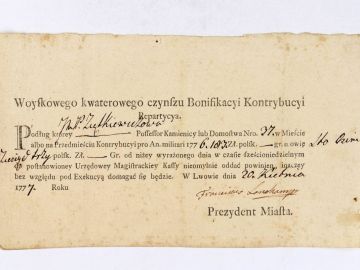 Woyskowego kwaterowego czynszu Bonifikacyi Kontrybucyi
Repartycya.
Podług ktorey Possessor Kamienicy lub Domostwa Nro. 37. w Mieście
albo na Przedmieściu Kontrybucyi pro An. militari 177 6. polsk. gr. owie Sto
trzy polsk. Zł. Gr. od niżey wyrażonego dnia w czasie sześcioniedzielnym
do postanowioney Urzędowey Magistrackiey Kassy nieomylnie oddać powinien, inaczey
bez względu pod Exekucyą domagać się będzie. W Lwowie dnia 20.
1777. Roku
Prezydent Miasta.